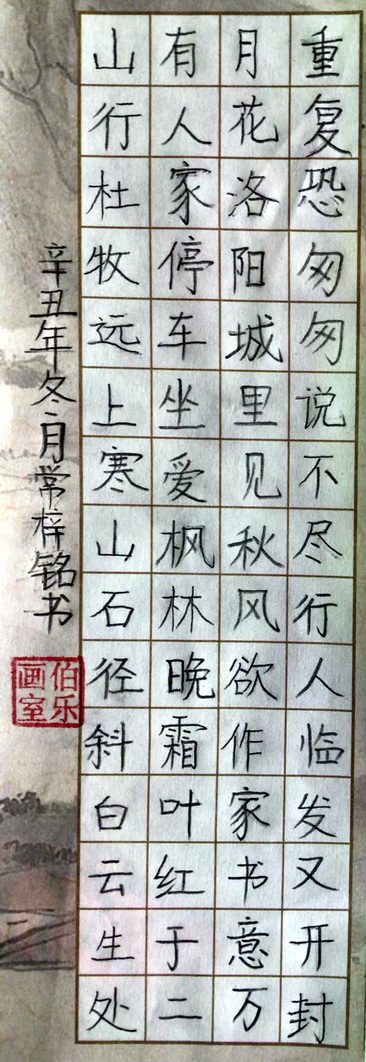 山行杜牧远上寒山石径斜白云生处
有人家停车坐爱枫林晚霜叶红于二
月花洛阳城里见秋风欲作家书意万
重复恐匆匆说不尽行人临发又开封
辛丑年冬月常梓铭书
伯乐
画室